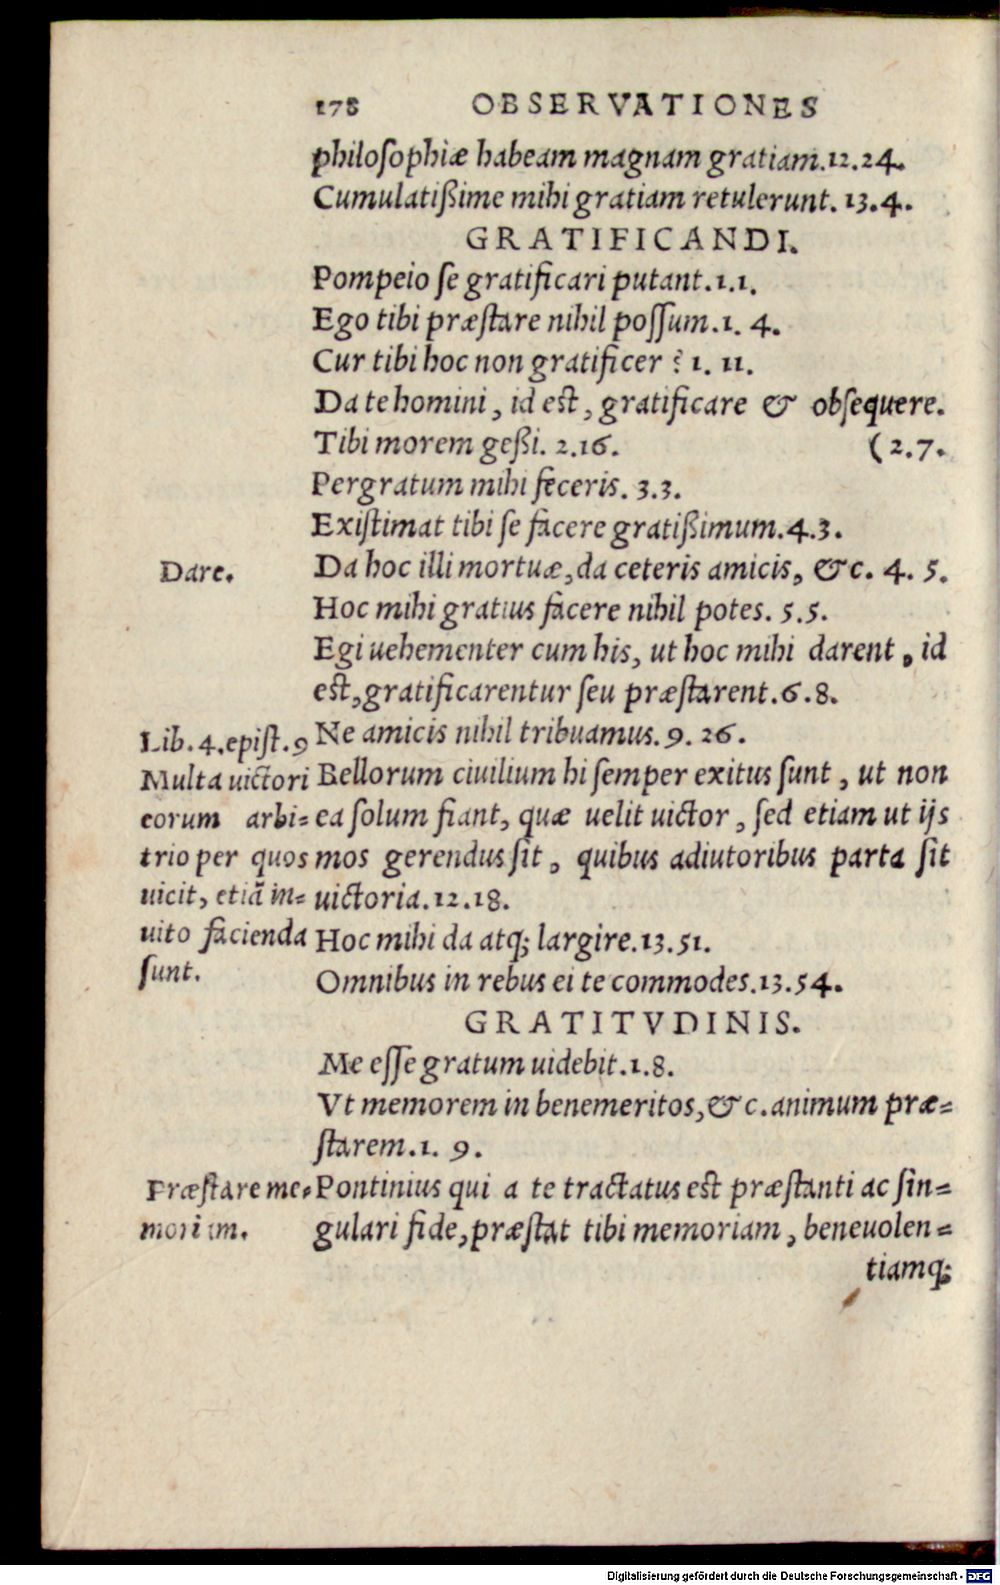 178 OBSERVATIONES
philoſophiæ habeam magnam gratiam.12.24.
Cumulatißime mihi gratiam retulerunt. 13.4.
GRATIFICANDI.
Pompeio ſe gratificari putant.1.1.
Ego tibi præſtare nihil poſſum.1. 4.
Cur tibi hoc non gratificer? 1. 11.
Da te homini, id est, gratificare & obſequere.
Tibi morem geßi. 2.16. (2.7.
Pergratum mihi feceris. 3.3.
Exiſtimat tibi ſe facere gratißimum.4.3.
Dare.
Da hoc illi mortuæ, da ceteris amicis, &c. 4. 5.
Hoc mihi gratius facere nihil potes. 5.5.
Egi uehementer cum his, ut hoc mihi darent, id
est, gratificarentur ſeu præſtarent.6.8.
Ne amicis nihil tribuamus. 9. 26.
Lib. 4. epiſt. 9
Multa uictori
eorum arbi=
trio per quos
uicit, etiã in=
uito facienda
ſunt.
Bellorum ciuilium hi ſemper exitus ſunt, ut non
ea ſolum fiant, quæ uelit uictor, ſed etiam ut ijs
mos gerendus ſit, quibus adiutoribus parta ſit
uictoria.12.18.
Hoc mihi da atq; largire.13.51.
Omnibus in rebus ei te commodes.13.54.
GRATITVDINIS.
Me eſſe gratum uidebit.1.8.
Vt memorem in benemeritos, &c. animum præ=
ſtarem.1. 9.
Præſtare me=
moriam.
Pontinius qui a te tractatus est præſtanti ac ſin=
gulari fide, præſtat tibi memoriam, beneuolen=
tiamq;
Digitalisierung gefördert durch die Deutsche Forschungsgemeinschaft - DFG